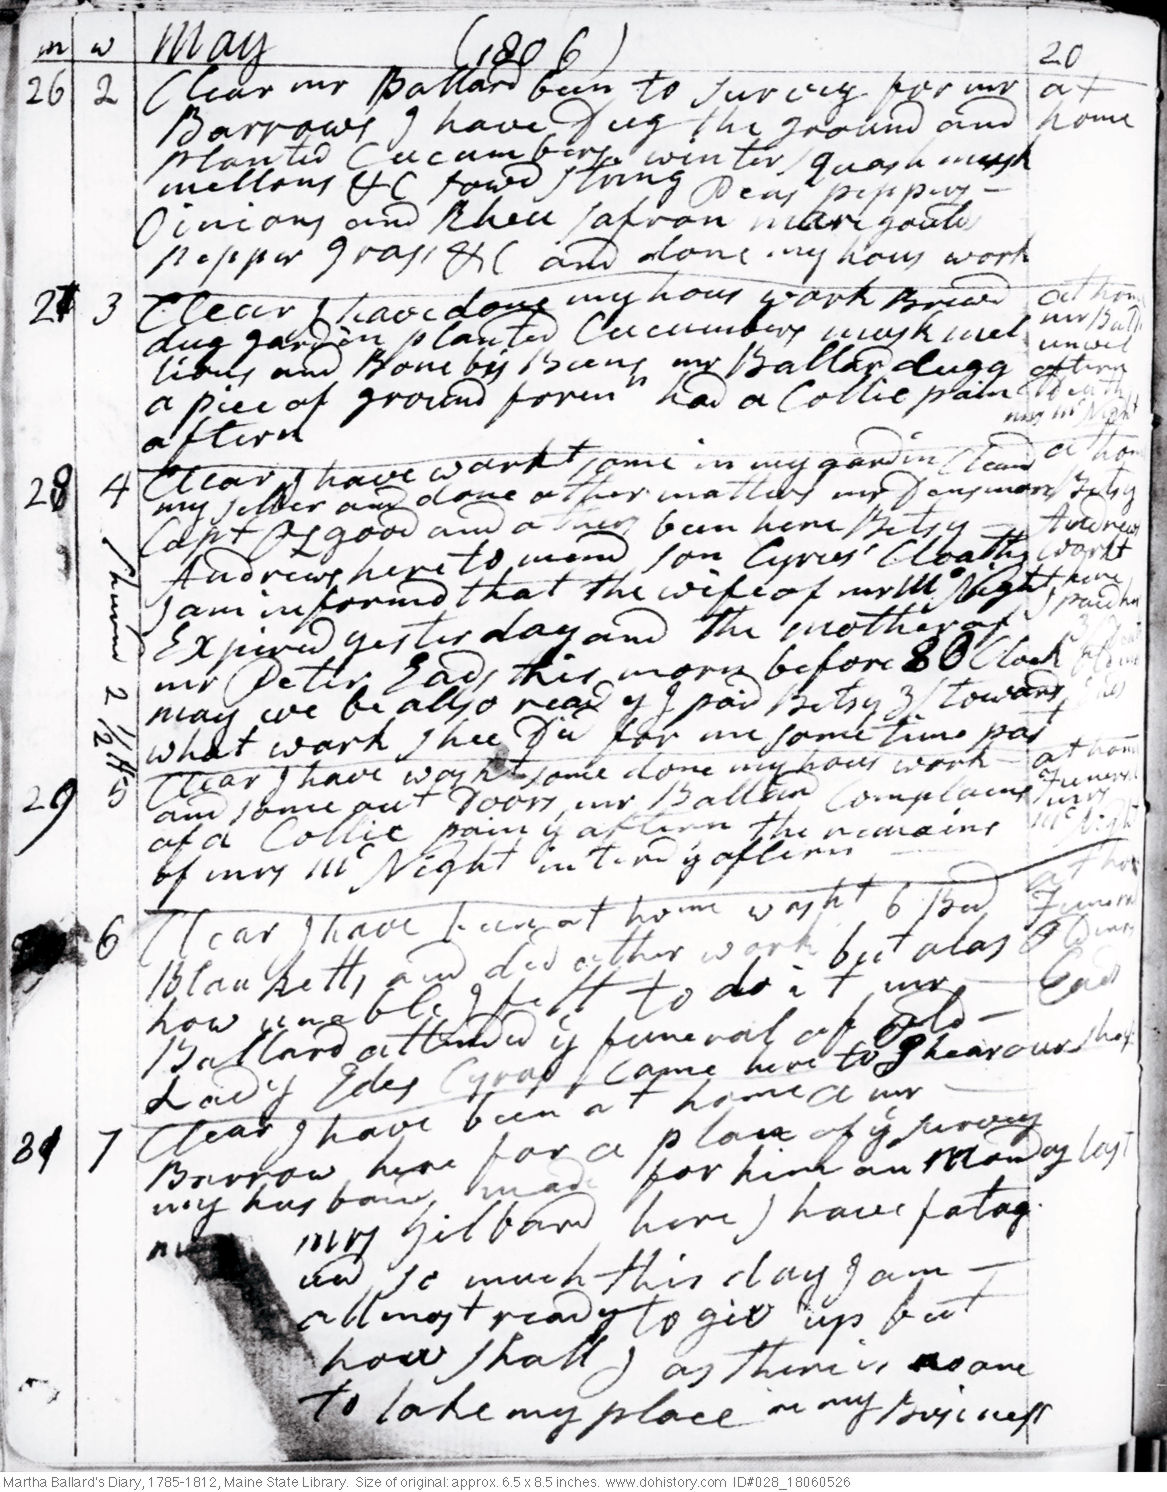 m w May (1806) 20
26 2 Clear mr Ballard been to survey for mr at
Barrows I have Dug the ground and home
planted Cucumbers winter squash mush
mellons &C sowd string Peas peppers –
Oinions and Rheu safron marigoulds
pepper grass &C and done my hous work
27 3 Clear I have done my hous work Brewd at home
dug gardin planted Cucumbers musk mel mr Ball
lions and Bone bis Beens mr Ballard dugg unwel
a piec of ground foren n had a Collic pain aftern
aftern
28 4 Clear I have workt some in my gardin Cleand at hom
my seller and done other matters mr Densmore Betsy
Capt Osgood and others been here Betsy – Andrews
Andrews here to mend son Cyrus' Cloaths workt
I am informd that the wife of mr Mc Night here
Expired yesterday and the mother of I paid her
mr Peter Eads this morn before 8 O Clock
may we be allso ready I paid Betsy 3/ towards
what work shee Did for me some time past
29 5 Clear I have washt some done my hous work – at home
and some out Doors mr Ballard Complains Funeral
of a Collic pain y aftern the remains mrs
of mrs Mc Night interd y aftern Mc Night
6 Clear I have been at home washt 6 Bed at hom
Blanketts and did other work but alas Funeral
how unable I felt to do it mr – Eads
Ballard attended y funeral of Old –
Lady Edes Cyrus Came here to
31 7 Clear I have been at home a mr –
Barrow here for a plan of y survey
my husband made for him on Monday last
mrs Gilbard here I have fatag
ued so much this day I am –
allmost ready to give up but
how shall I as there is no one
to take my place in my Business
Martha Ballard's Diary, 1785-1812, Maine State Library. Size of original: approx. 6.5 x 8.5 inches. www.dohistory.com ID#028_18060526